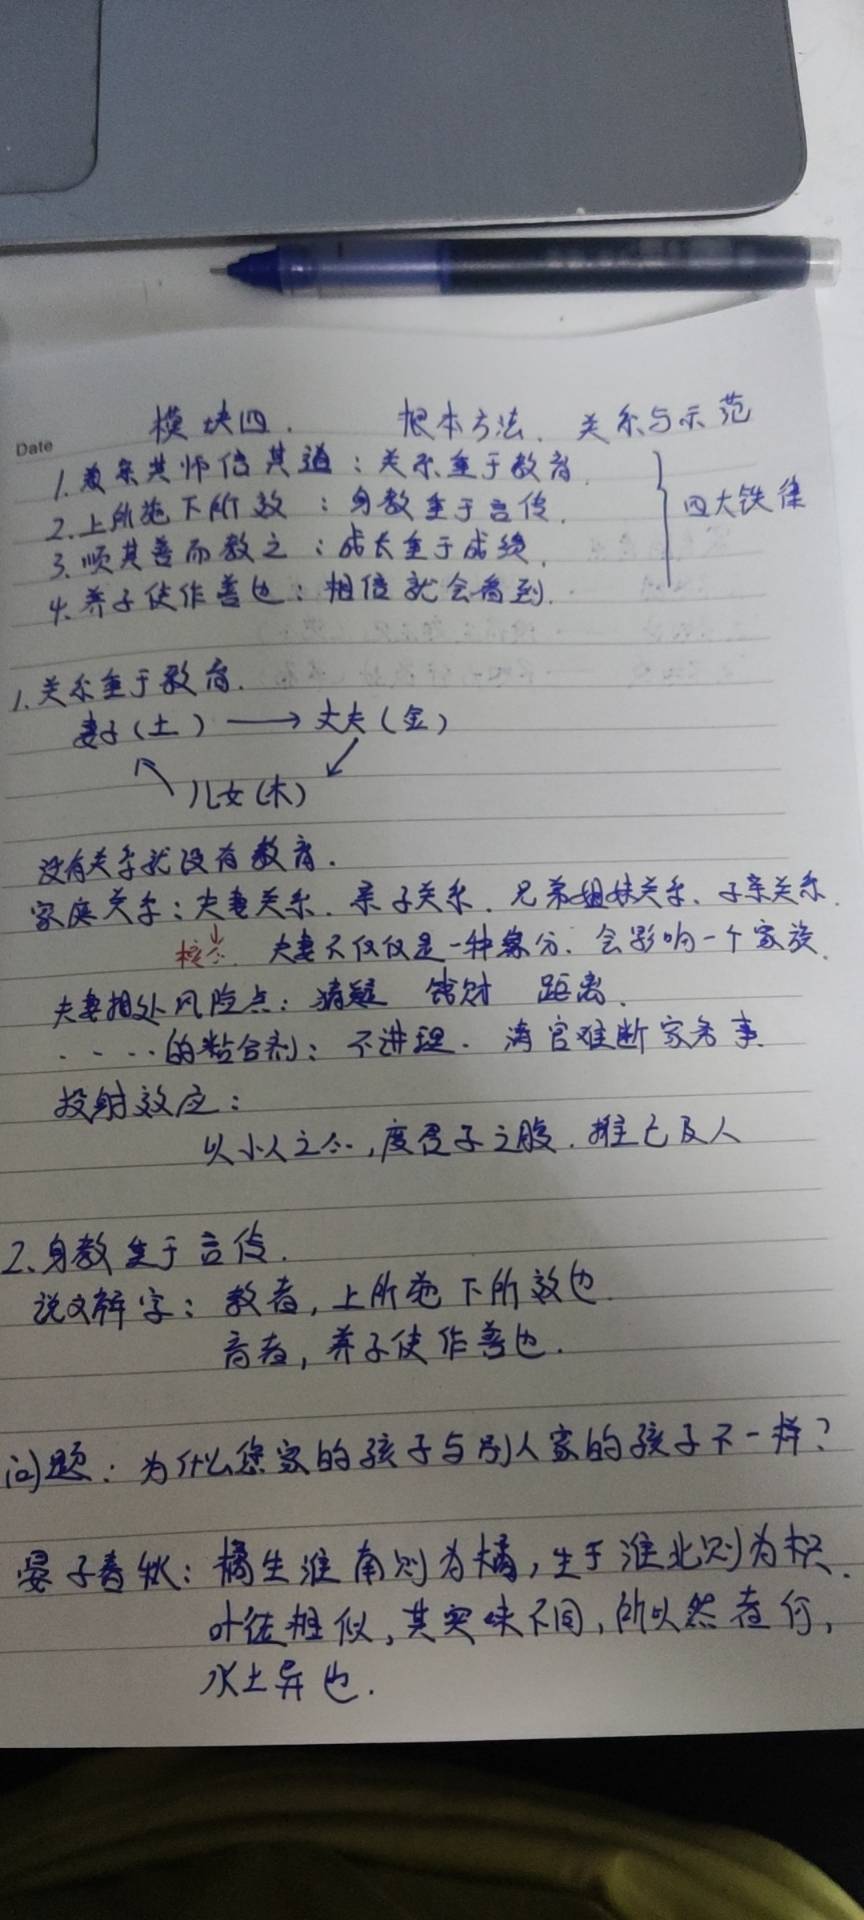 Date
模块四. 根本方法、关系与示范
1.敬亲其师信其道：关系重于教育.
2.上所施下所效：身教重于言传.
3.顺其善而教之：成长重于成绩.
4.养子使作善也：相信就会看到.
四大铁律
1.关系重于教育.
妻子(土) → 丈夫(金)
儿女(木)
没有关系就没有教育.
家庭关系：夫妻关系、亲子关系、兄弟姐妹关系、子亲关系.
核心. 夫妻不仅仅是一种缘分、会影响一个家族.
夫妻相处风险点：猜疑 钱财 距离.
....的粘合剂：不讲理. 清官难断家务事.
投射效应：
以小人之心,度君子之腹.推己及人
2.身教重于言传.
说文解字：教者,上所施下所效也.
育者,养子使作善也.
问题：为什么您家的孩子与别人家的孩子不一样?
晏子春秋：橘生淮南则为橘,生于淮北则为枳.
叶徒相似,其实味不同,所以然者何,
水土异也.